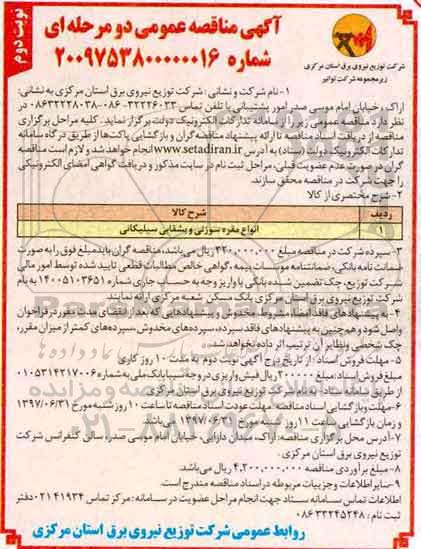 نوبت دوم
آگهی مناقصه عمومی دو مرحله ای
شماره ۲۰۰۹۷۵۳۸۰۰۰۰۰۰۱۶
شرکت توزیع نیروی برق استان مرکزی
زیرمجموعه شرکت توانیر
۱- نام شرکت و نشانی : شرکت توزیع نیروی برق استان مرکزی به نشانی:
اراک، خیابان امام موسی صدر امور پشتیبانی با تلفن تماس ۳۲۲۲۶۰۳۳-۰۸۶ -۰۸۶۳۲۲۲۸۰۳۸ در
نظر دارد مناقصه عمومی زیر را از سامانه تدارکات الکترونیک دولت برگزار نماید. کلیه مراحل برگزاری
مناقصه از دریافت اسناد مناقصه تا ارائه پیشنهاد مناقصه گران و بازگشایی پاکت‌ها از طریق درگاه سامانه
تدارکات الکترونیک دولت (ستاد) به آدرس www.setadiran.ir انجام خواهد شد و لازم است مناقصه
گران در صورت عدم عضویت قبلی، مراحل ثبت نام در سایت مذکور و دریافت گواهی امضای الکترونیکی
را جهت شرکت در مناقصه محقق سازند.
۲- شرح مختصری از کالا
ردیف شرح کالا
۱ انواع مقره سوزنی و بشقابی سیلیکانی
۳- سپرده شرکت در مناقصه مبلغ ۳۲۰،۰۰۰،۰۰۰ ریال می‌باشد، مناقصه گران باید مبلغ فوق را به صورت
ضمانت نامه بانکی، ضمانتنامه موسسات بیمه، گواهی خالص مطالبات قطعی تایید شده توسط امور مالی
شرکت توزیع، چک تضمین شده بانکی یا واریز وجه به حساب جاری شماره ۱۴۰۰۵۱۰۳۶۵۱ به نام
شرکت توزیع نیروی برق استان مرکزی بانک مسکن شعبه مرکزی ارائه نمایند.
۴- به پیشنهادهای فاقد امضاء، مشروط، مخدوش و پیشنهادهایی که بعد از انقضای مدت مقرر در فراخوان
واصل شود و هم چنین به پیشنهادهای فاقد سپرده، سپرده‌های مخدوش، سپرده‌های کمتر از میزان مقرر،
چک شخصی و نظایر آن ترتیب اثر داده نخواهد شد.
۵- مهلت فروش اسناد: از تاریخ درج آگهی نوبت دوم به مدت ۱۰ روز کاری
مبلغ فروش اسناد: مبلغ ۲۰۰۰۰۰ ریال فیش واریزی در وجه سیبا بانک ملی به شماره ۰۱۰۵۳۱۴۲۱۷۰۰۶
از طریق سامانه ستاد به نام شرکت توزیع نیروی برق استان مرکزی
۶- مهلت و بازگشایی اسناد مناقصه: مهلت عودت اسناد مناقصه تا ساعت ۱۰ روز شنبه مورخ ۱۳۹۷/۰۶/۳۱
و زمان بازگشایی ساعت ۱۱ روز شنبه مورخ ۱۳۹۷/۰۶/۳۱ می باشد.
۷- آدرس محل برگزاری مناقصه: اراک، میدان دارایی، خیابان امام موسی صدر، سالن کنفرانس شرکت
توزیع نیروی برق استان مرکزی.
۸- مبلغ برآوردی مناقصه ۴،۲۰۰،۰۰۰،۰۰۰ ریال می‌باشد.
۹- سایر اطلاعات و جزییات مربوطه در اسناد مناقصه مندرج است.
اطلاعات تماس سامانه ستاد جهت انجام مراحل عضویت در سامانه: مرکز تماس ۴۱۹۳۴-۰۲۱ دفتر
ثبت نام: ۳۲۲۴۵۲۴۸-۰۸۶
روابط عمومی شرکت توزیع نیروی برق استان مرکزی